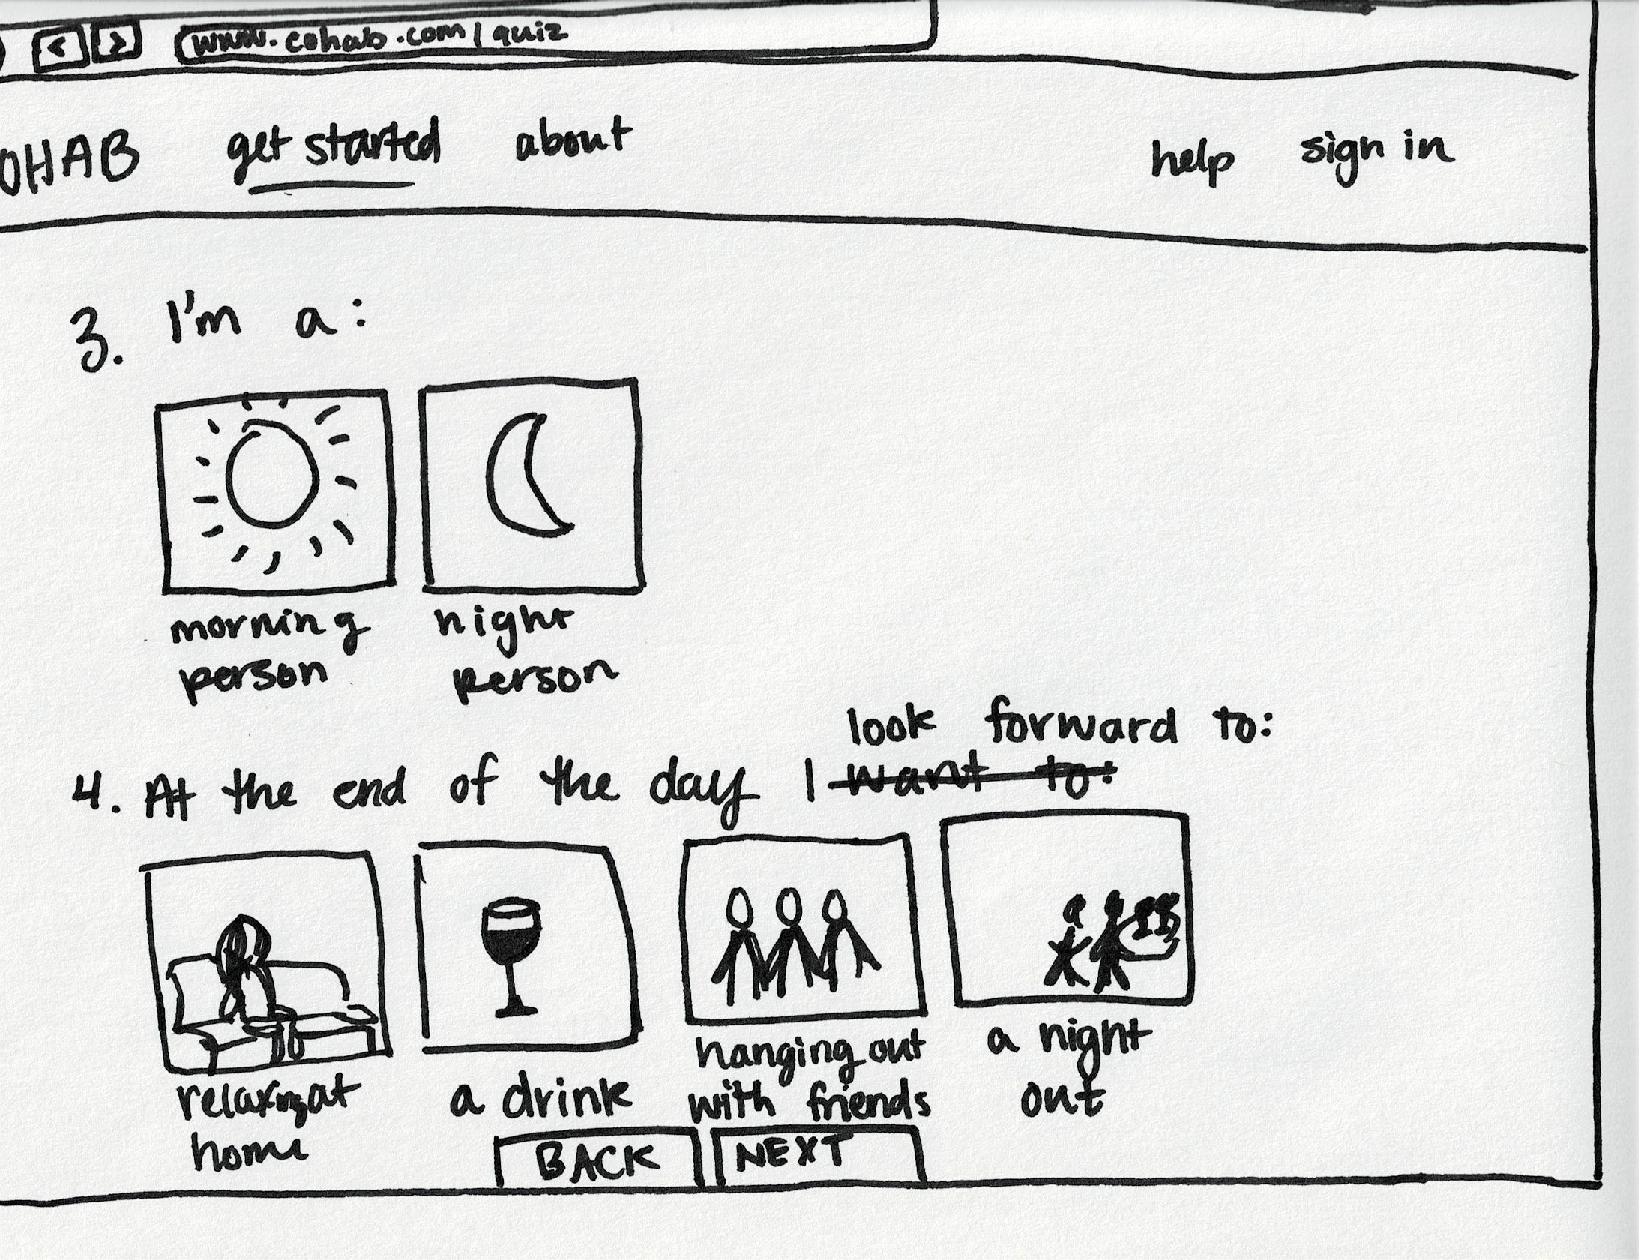 < > www.cohab.com/quiz
OHAB get started about help sign in
3. I'm a:
morning person
night person
look forward to:
4. At the end of the day I want to:
relaxing at home
a drink
hanging out with friends
a night out
BACK NEXT